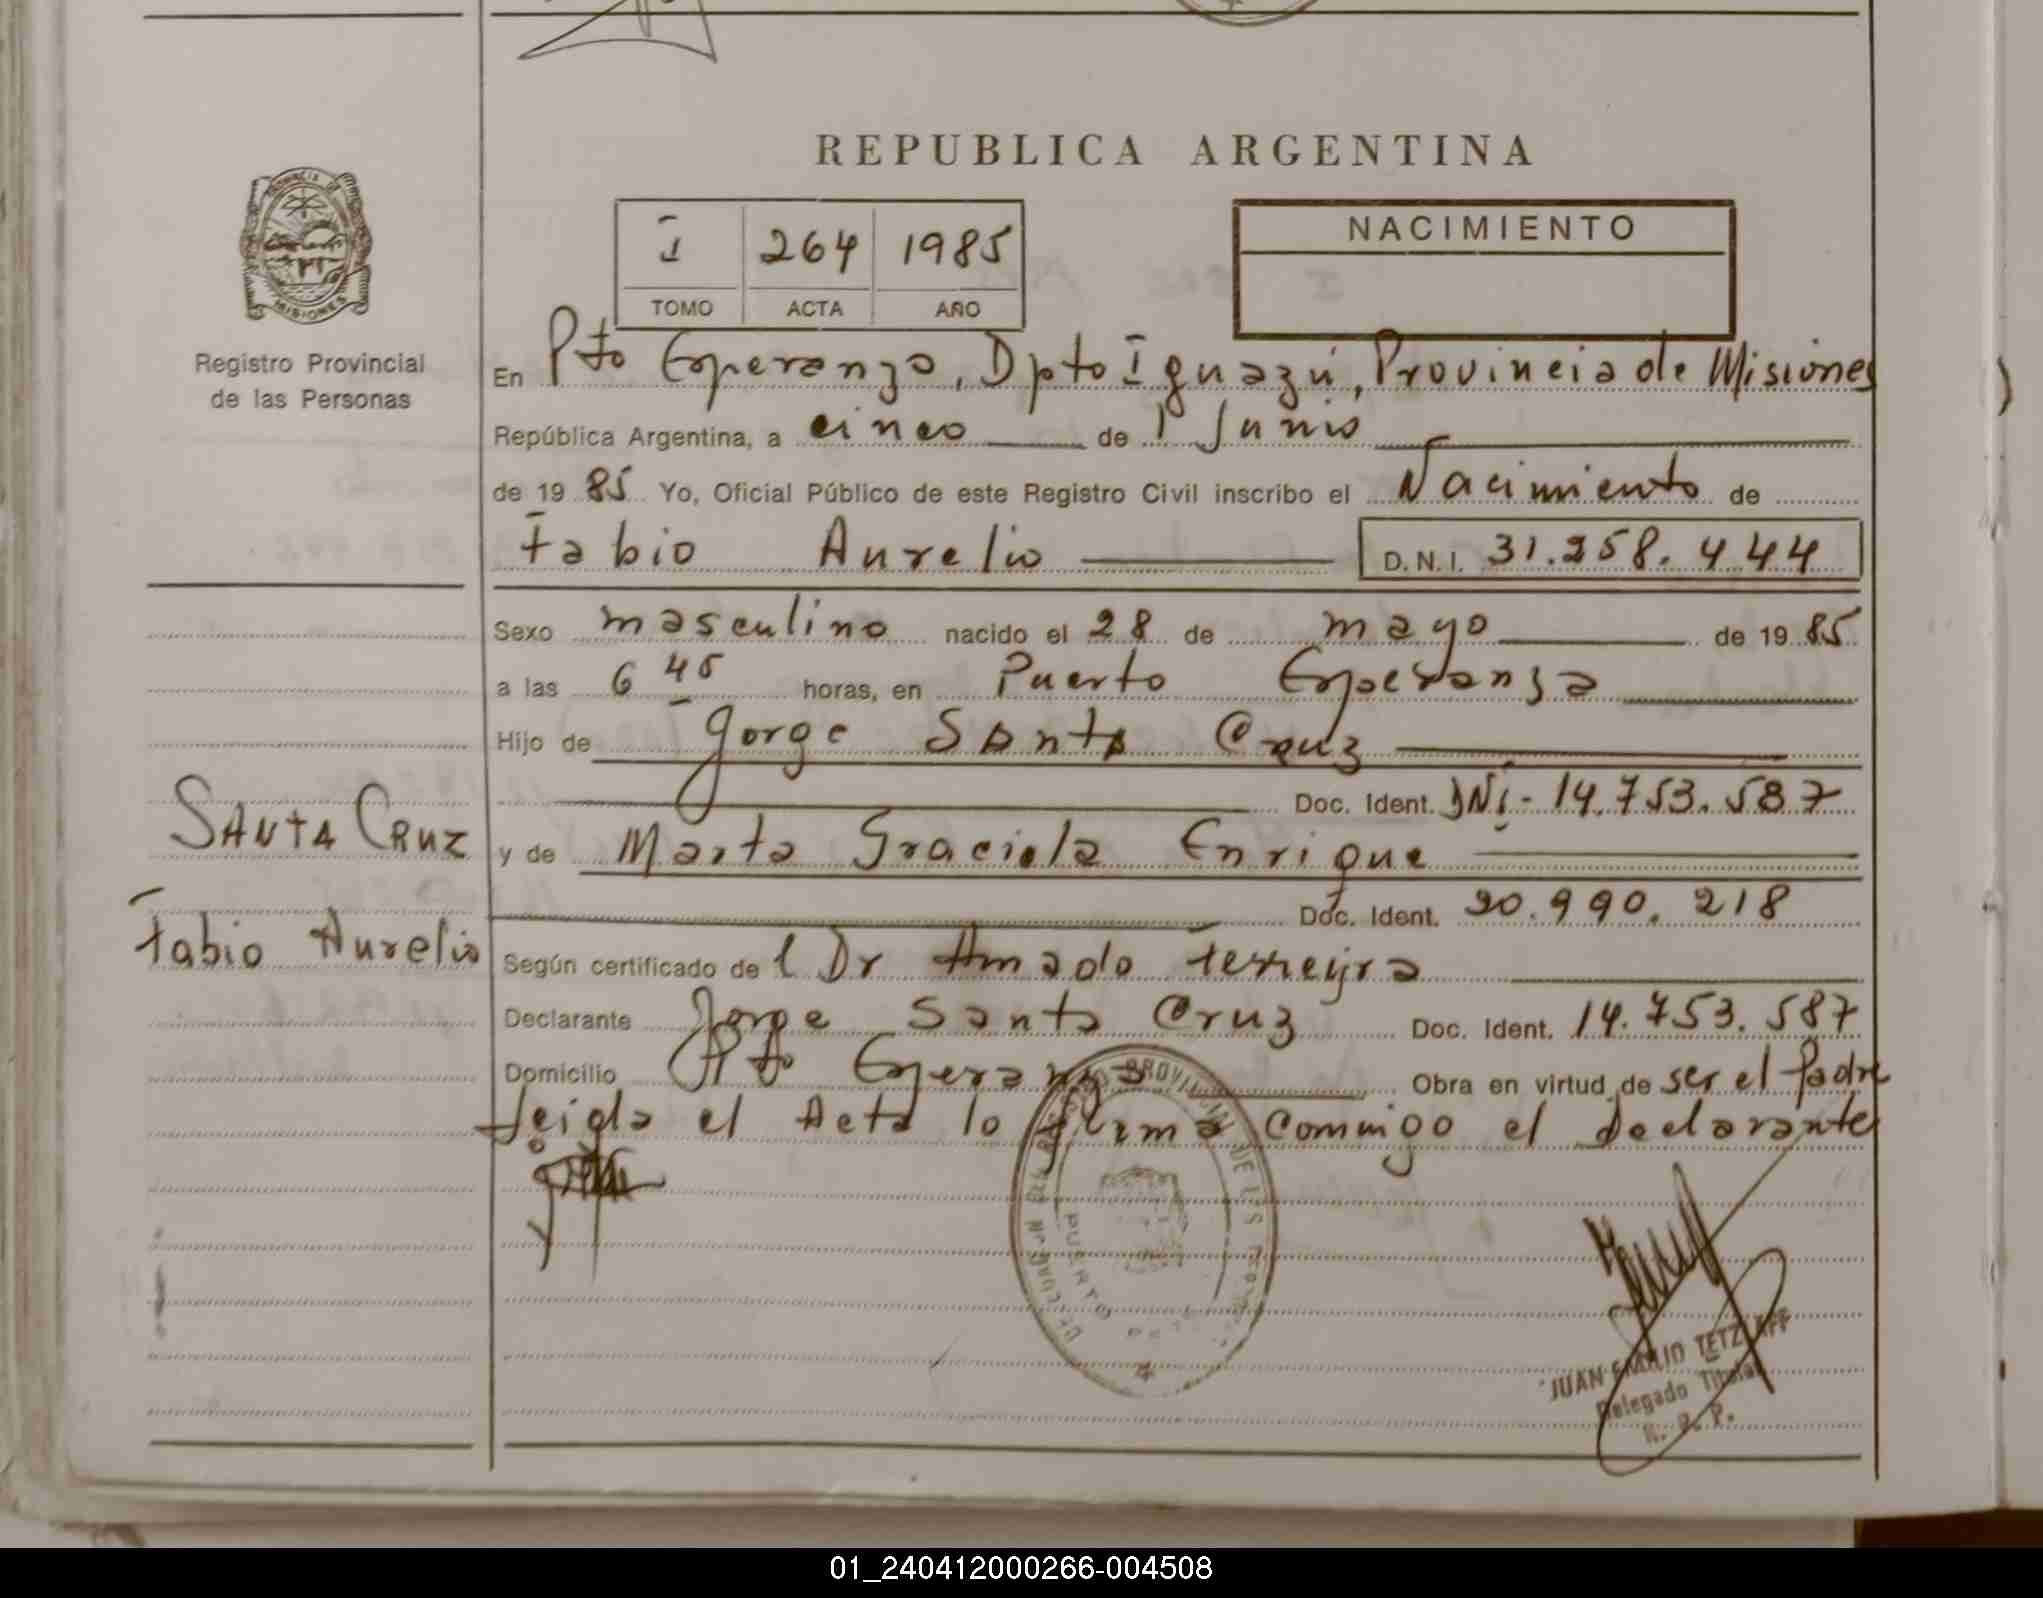 REPUBLICA ARGENTINA
I 264 1985
TOMO ACTA AÑO
NACIMIENTO
PROVINCIA DE
MISIONES
Registro Provincial
de las Personas
En Pto Esperanza, Dpto Iguazú, Provincia de Misiones
República Argentina, a cinco de Junio
de 19 85 Yo, Oficial Público de este Registro Civil inscribo el Nacimiento de
Fabio Aurelio D.N.I. 31.258.444
Sexo masculino nacido el 28 de mayo de 19 85
a las 6 45 horas, en Puerto Esperanza
Hijo de Jorge Santa Cruz
Doc. Ident. DNi- 14.753.587
y de Marta Graciela Enrique
Doc. Ident. 20.990.218
SANTA CRUZ
Fabio Aurelio
Según certificado de l Dr Amado Ferreyra
Declarante Jorge Santa Cruz Doc. Ident. 14.753.587
Domicilio Pto Esperanza Obra en virtud de ser el Padre
Leida el Acta la firma conmigo el Declarante
PUERTO
JUAN EMILIO TETZLAFF
Delegado Titular
R. P. P.
01_240412000266-004508